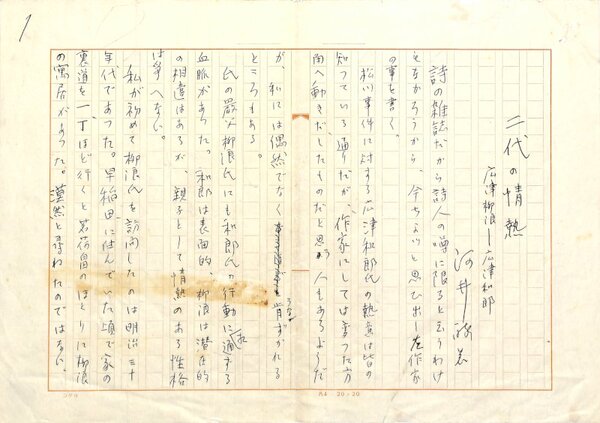 1
二代の情熱
広津柳浪と広津和郎
河井酔茗
詩の雑誌だから詩人の噂に限ると云うわけ
ともなかろうから、今ちょいと思ひ出した作家
の事を書く。
松川事件に対する広津和郎氏の熱意は皆の
知っている通りだが、作家にしては変った方
面へ動きだしたものだと思う人もあるようだ
が、私には偶然でなく肯ずかれる
うな
ところもある。
氏の厳父柳浪氏にも和郎氏の行動に通ずる
血脈があった。和郎は表面的、柳浪は潜在的
の相違はあるが、親子として情熱のある性格
は争へない。
私が初めて柳浪氏を訪問したのは明治三十
年代であった。早稲田に住んでいた頃で家の
裏道を一丁ほど行くと茗荷畠のほとりに柳浪
の寓居があった。漠然と尋ねたのではない。
コクヨ
20×20